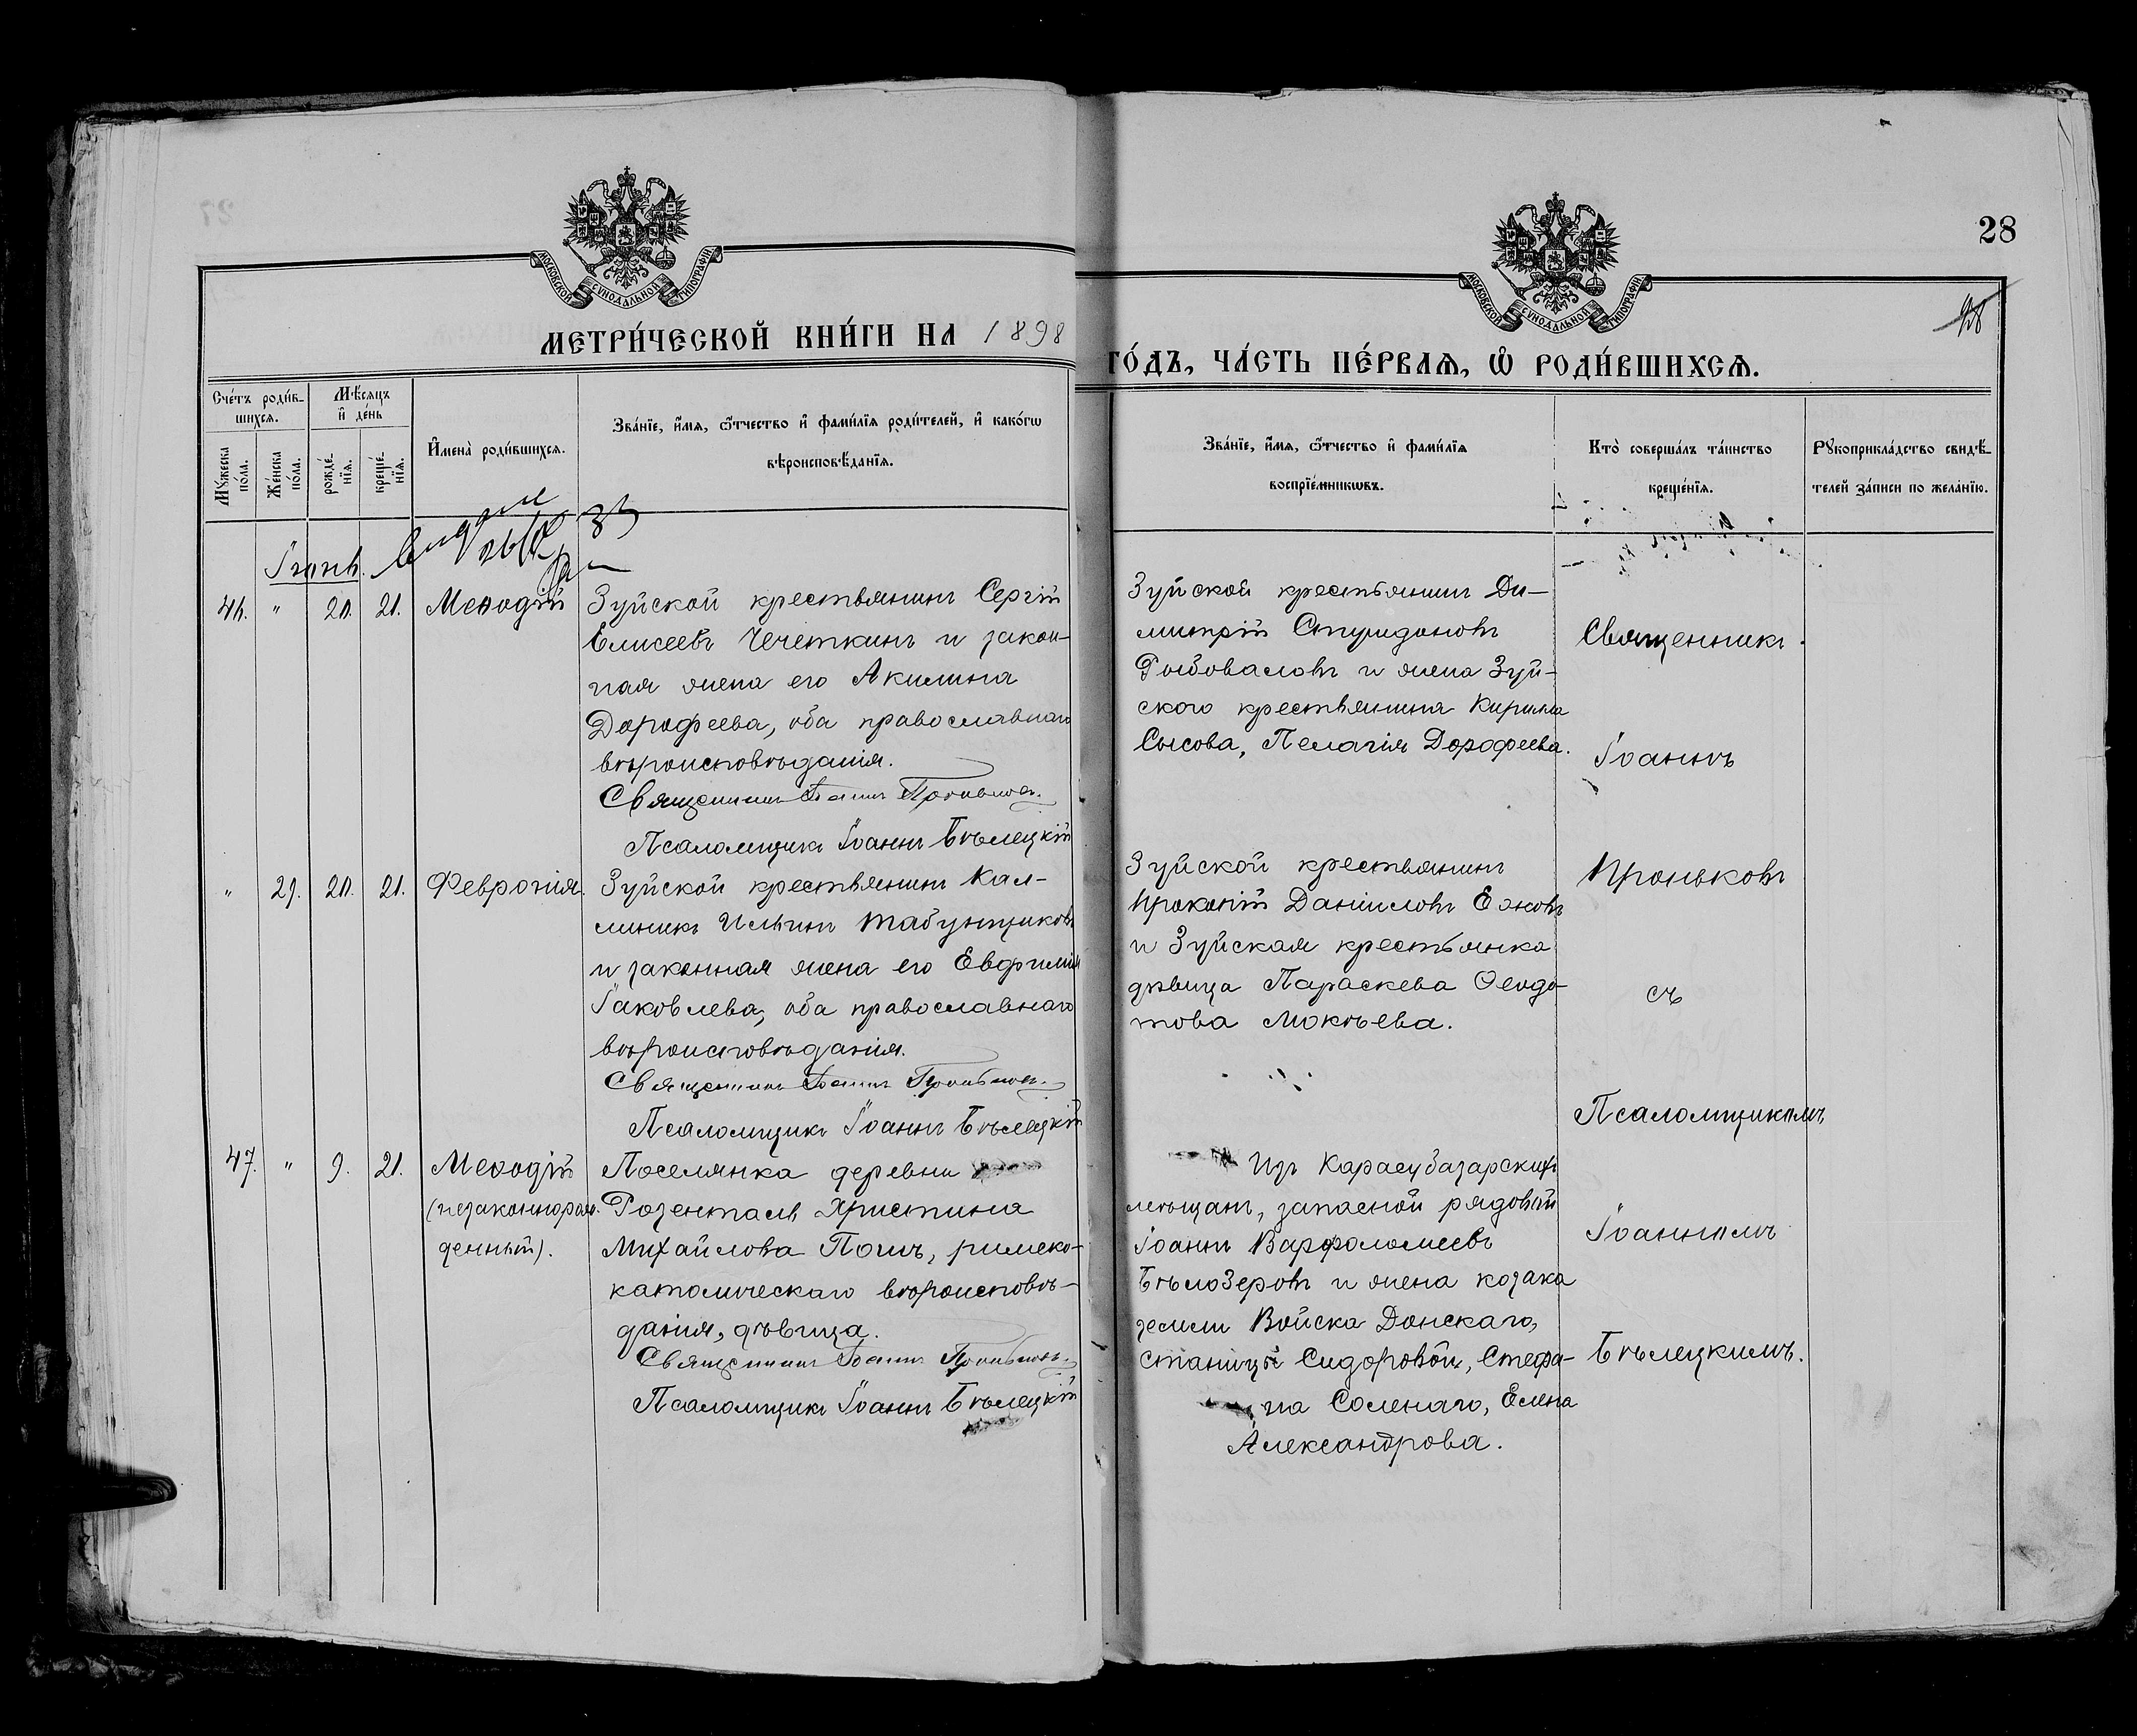 28
МОСКОВСКОЙ СѴНОДАЛЬНОЙ ТИПОГРАФІИ.
МОСКОВСКОЙ СѴНОДАЛЬНОЙ ТИПОГРАФІИ.
МЕТРИ́ЧЕСКОЙ КНИ́ГИ НА 1898
ГО́ДЪ, ЧА́СТЬ ПЕ́РВАѦ, Ѡ҆ РОДИ́ВШИХСѦ.
Сче́тъ роди́в-
шихсѧ.
Мꙋ́жеска по́ла.
Же́нска по́ла.
Мѣ́сѧцъ
и҆ де́нь
рожде́-нїѧ.
креще́-нїѧ.
И҆мена̀ роди́вшихсѧ.
Зва́нїе, и҆́мѧ, ѻ҆́тчество и҆ фами́лїѧ роди́телей, и҆ како́гѡ
вѣроисповѣ́данїѧ.
Зва́нїе, и҆́мѧ, ѻ҆́тчество и҆ фами́лїѧ
воспрїе́мникѡвъ.
Кто̀ соверша́лъ та́инство
креще́нїѧ.
Рꙋкоприкла́дство свидѣ́-
телей за́писи по жела́нїю.
Іюнь.
46. " 20. 21. Меѳодій
Зуйской крестьянинъ Сергій
Елисеевъ Чечеткинъ и закон-
ная жена его Акилина
Дорофеева, оба православнаго
вѣроисповѣданія.
Священникъ Іоаннъ Проньковъ.
Псаломщикъ Іоаннъ Бѣлецкій
Зуйской крестьянинъ Ди-
митрій Спиридоновъ
Рыбоваловъ и жена Зуй-
ского крестьянина Кирила
Сысова, Пелагія Дорофеева.
" 29. 20. 21. Февронія.
Зуйской крестьянинъ Кал-
линикъ Ильинъ Табунщиковъ
и законная жена его Евфимія
Іаковлева, оба православнаго
вѣроисповѣданія.
Священникъ Іоаннъ Проньковъ.
Псаломщикъ Іоаннъ Бѣлецкій
Зуйской крестьянинъ
Прокопій Даніиловъ Ежовъ
и Зуйская крестьянка
дѣвица Параскева Ѳеодо-
това Мокѣева.
47. " 9. 21. Меѳодій
(незаконнорож-
денный).
Поселянка деревни
Розенталь Христина
Михайлова
римско-
католическаго вѣроисповѣ-
данія, дѣвица.
Священникъ Іоаннъ Проньковъ.
Псаломщикъ Іоаннъ Бѣлецкій
Изъ Карасубазарскихъ
мѣщанъ, запасной рядовой
Іоаннъ Варфоломеевъ
Бѣлозеровъ и жена козака
земли Войска Донскаго,
станицы Сидоровой, Стефа-
на Соленаго, Елена
Александрова.
Священникъ
Іоаннъ
Проньковъ
съ
Псаломщикомъ
Іоанномъ
Бѣлецкимъ.